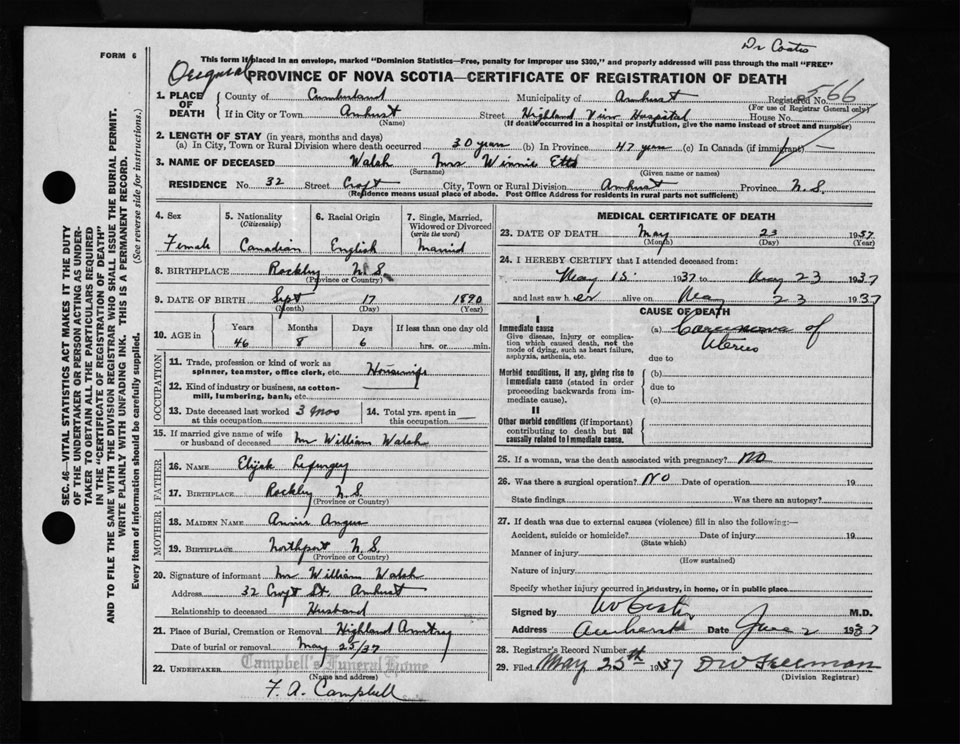 Dr Coates
FORM 6
This form if placed in an envelope, marked "Dominion Statistics—Free, penalty for improper use $300," and properly addressed will pass through the mail "FREE"
Original PROVINCE OF NOVA SCOTIA—CERTIFICATE OF REGISTRATION OF DEATH
1. PLACE OF DEATH County of Cumberland Municipality of Amherst Registered No. 566
(For use of Registrar General only)
If in City or Town Amherst Street Highland View Hospital House No.
(Name) (If death occurred in a hospital or institution, give the name instead of street and number)
2. LENGTH OF STAY (in years, months and days)
(a) In City, Town or Rural Division where death occurred 30 years (b) In Province 47 years (c) In Canada (if immigrant) —
3. NAME OF DECEASED Walsh Mrs Winnie Etta
(Surname) (Given name or names)
RESIDENCE No. 32 Street Croft City, Town or Rural Division Amherst Province N.S.
(Residence means usual place of abode. Post Office Address for residents in rural parts not sufficient)
4. Sex Female
5. Nationality (Citizenship) Canadian
6. Racial Origin English
7. Single, Married, Widowed or Divorced (write the word) Married
8. BIRTHPLACE Rockley N.S.
(Province or Country)
9. DATE OF BIRTH Sept 17 1890
(Month) (Day) (Year)
10. AGE in Years 46 Months 8 Days 6 If less than one day old hrs. or min.
OCCUPATION
11. Trade, profession or kind of work as spinner, teamster, office clerk, etc. Housewife
12. Kind of industry or business, as cotton-mill, lumbering, bank, etc. —
13. Date deceased last worked at this occupation 3 mos
14. Total yrs. spent in this occupation —
15. If married give name of wife or husband of deceased Mr William Walsh
FATHER
16. NAME Elijah
17. BIRTHPLACE Rockley N.S.
(Province or Country)
MOTHER
18. MAIDEN NAME Annie Angus
19. BIRTHPLACE Northport N.S.
(Province or Country)
20. Signature of informant Mr William Walsh
Address 32 Croft St. Amherst
Relationship to deceased Husband
21. Place of Burial, Cremation or Removal Highland
Date of burial or removal May 25/37
22. UNDERTAKER Campbell's Funeral Home
(Name and address)
F. A. Campbell
MEDICAL CERTIFICATE OF DEATH
23. DATE OF DEATH May 23 1937
(Month) (Day) (Year)
24. I HEREBY CERTIFY that I attended deceased from:
May 15 1937 to May 23 1937
and last saw her alive on May 23 1937
CAUSE OF DEATH
I
Immediate cause
Give disease, injury or complication which caused death, not the mode of dying, such as heart failure, asphyxia, asthenia, etc.
(a) Carcinoma of
Uterus
due to
Morbid conditions, if any, giving rise to immediate cause (stated in order proceeding backwards from immediate cause).
(b)
due to
(c)
II
Other morbid conditions (if important) contributing to death but not causally related to immediate cause.
25. If a woman, was the death associated with pregnancy? NO
26. Was there a surgical operation? NO Date of operation 19
State findings Was there an autopsy?
27. If death was due to external causes (violence) fill in also the following:—
Accident, suicide or homicide? Date of injury 19
(State which)
Manner of injury
(How sustained)
Nature of injury
Specify whether injury occurred in industry, in home, or in public place
Signed by M.D.
Address Amherst Date June 2 1937
28. Registrar's Record Number
29. Filed May 25th 1937 DW Freeman
(Division Registrar)
SEC. 46—VITAL STATISTICS ACT MAKES IT THE DUTY
OF THE UNDERTAKER OR PERSON ACTING AS UNDER-
TAKER TO OBTAIN ALL THE PARTICULARS REQUIRED
IN THE "CERTIFICATE OF REGISTRATION OF DEATH"
AND TO FILE THE SAME WITH THE DIVISION REGISTRAR WHO SHALL ISSUE THE BURIAL PERMIT.
WRITE PLAINLY WITH UNFADING INK. THIS IS A PERMANENT RECORD.
Every item of information should be carefully supplied. (See reverse side for instructions.)